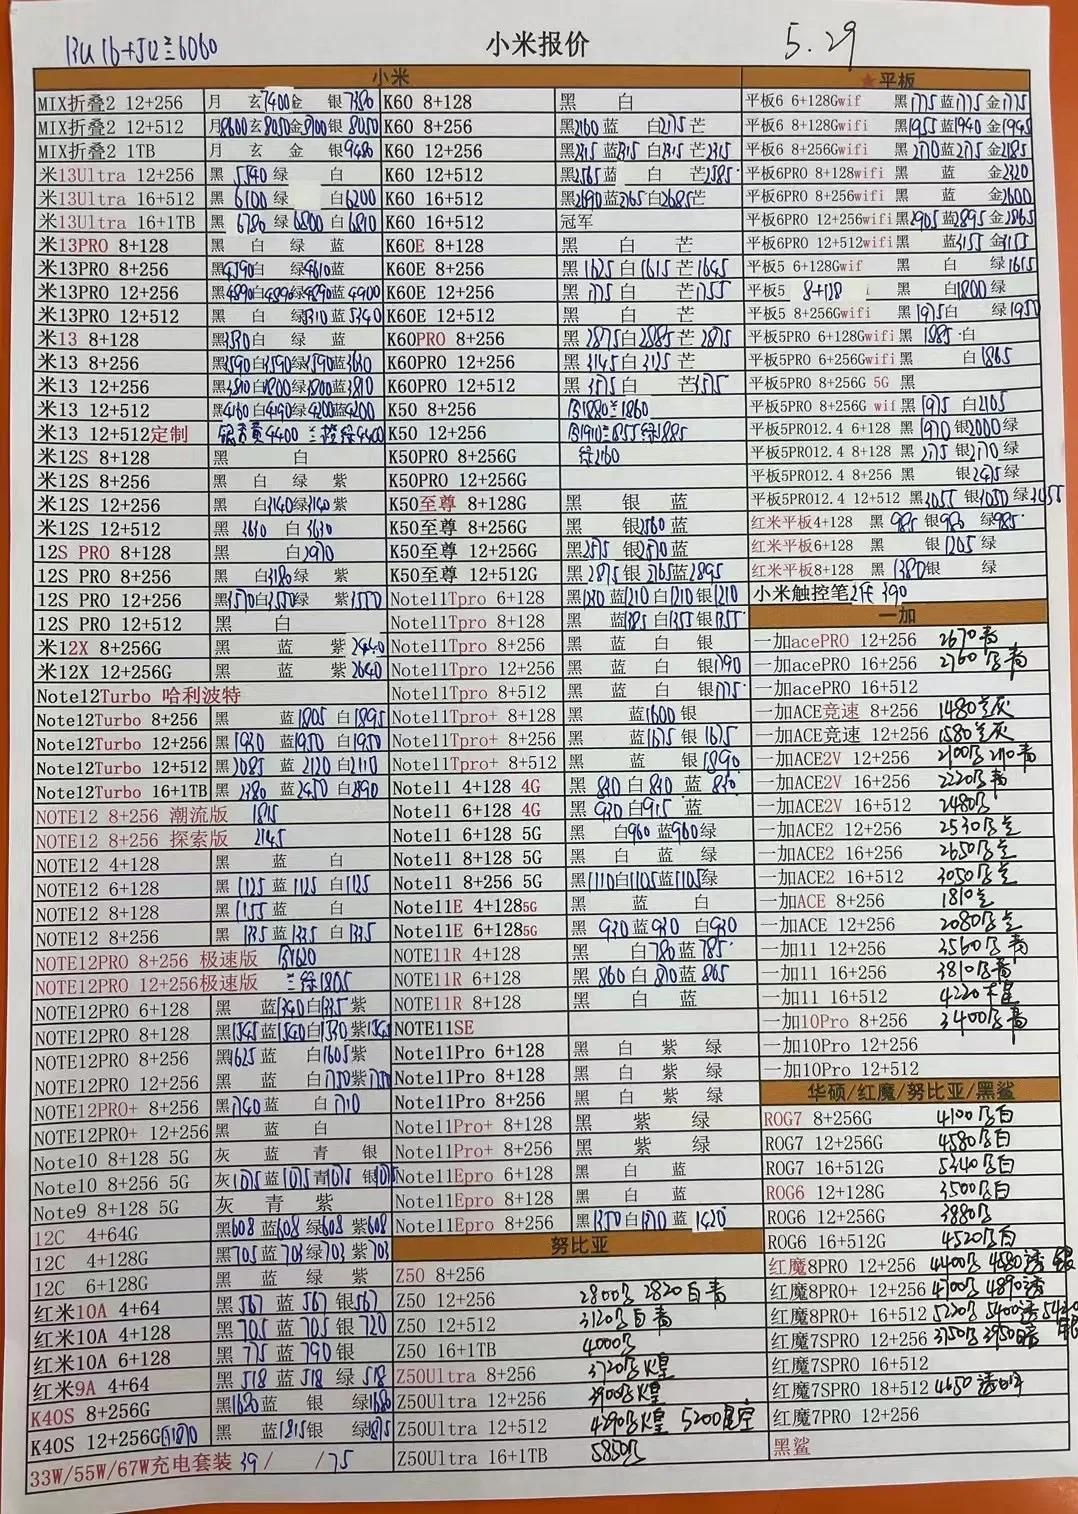 13U 16+512兰6060
小米报价
5.29
小米
MIX折叠2 12+256 月 玄7400金 银7380
MIX折叠2 12+512 月8600玄8050金7100银8050
MIX折叠2 1TB 月 玄 金 银9480
米13Ultra 12+256 黑 5540 绿 白
米13Ultra 16+512 黑 6100 绿 白6200
米13Ultra 16+1TB 黑 6780 绿 6800 白6810
米13PRO 8+128 黑 白 绿 蓝
米13PRO 8+256 黑4590白 绿4610蓝
米13PRO 12+256 黑4890白4890绿4890蓝4900
米13PRO 12+512 黑 白 绿5310蓝5340
米13 8+128 黑3330白 绿 蓝
米13 8+256 黑3590白3590绿3590蓝3630
米13 12+256 黑3810白3800绿3800蓝3810
米13 12+512 黑4160白4190绿4200蓝4200
米13 12+512定制
米12S 8+128 黑 白
米12S 8+256 黑 白 绿 紫
米12S 12+256 黑 白3140绿3140紫
米12S 12+512 黑 3630 白 3630
12S PRO 8+128 黑 白2970
12S PRO 8+256 黑 白3180绿 紫
12S PRO 12+256 黑3570白3550绿 紫3550
12S PRO 12+512 黑 白
米12X 8+256G 黑 蓝 紫2440
米12X 12+256G 黑 蓝 紫2640
Note12Turbo 哈利波特
Note12Turbo 8+256 黑 蓝1805 白1895
Note12Turbo 12+256 黑1930 蓝1950 白1950
Note12Turbo 12+512 黑2085 蓝2120 白2110
Note12Turbo 16+1TB 黑 2380 蓝2450 白2390
NOTE12 8+256 潮流版 1815
NOTE12 8+256 探索版 2145
NOTE12 4+128 黑 蓝 白
NOTE12 6+128 黑1125 蓝1125 白1125
NOTE12 8+128 黑1155 蓝 白
NOTE12 8+256 黑1335 蓝1335 白1335
NOTE12PRO 8+256 极速版
NOTE12PRO 12+256极速版 兰绿1805
NOTE12PRO 6+128 黑 蓝1340白1335紫
NOTE12PRO 8+128 黑1345蓝1340白1330紫1345
NOTE12PRO 8+256 黑1625 蓝 白1605紫
NOTE12PRO 12+256 黑 蓝 白1750紫1750
NOTE12PRO+ 8+256 黑1740 蓝 白1710
NOTE12PRO+ 12+256 黑 蓝 白
Note10 8+128 5G 灰 蓝 青 银
Note10 8+256 5G 灰1075蓝1075青1075 银1075
Note9 8+128 5G 灰 青 紫
12C 4+64G 黑608蓝608 绿608 紫608
12C 4+128G 黑705蓝703绿703 紫703
12C 6+128G 黑 蓝 绿 紫
红米10A 4+64 黑 567 蓝 567 银567
红米10A 4+128 黑 705 蓝 705 银 720
红米10A 6+128 黑 775 蓝 790银
红米9A 4+64 黑 518 蓝 518 绿 518
K40S 8+256G 黑1680蓝 银 绿1680
K40S 12+256G 黑 蓝1815银 绿1815
33W/55W/67W充电套装 39/ /75
K60 8+128 黑 白
K60 8+256 黑2160 蓝 白2175芒
K60 12+256 黑2315蓝2315 白2315 芒2315
K60 12+512 黑2565蓝 白 芒2585
K60 16+512 黑2690蓝2765白2685芒
K60 16+512 冠军
K60E 8+128 黑 白 芒
K60E 8+256 黑1625白1615芒1645
K60E 12+256 黑1775 白 芒1755
K60E 12+512 黑 白 芒
K60PRO 8+256 黑2875白2885芒2875
K60PRO 12+256 黑3145白3125芒
K60PRO 12+512 黑3575白 芒3575
K50 8+256
K50 12+256
K50PRO 8+256G 绿2160
K50PRO 12+256G
K50至尊 8+128G 黑 银 蓝
K50至尊 8+256G 黑 银2360蓝
K50至尊 12+256G 黑2575 银2570蓝
K50至尊 12+512G 黑2875银 2765蓝2895
Note11Tpro 6+128 黑1210蓝1210白1210银1210
Note11Tpro 8+128 黑 蓝1385白1355银1355
Note11Tpro 8+256 黑 蓝 白 银
Note11Tpro 12+256 黑 蓝 白 银1790
Note11Tpro 8+512 黑 蓝 白 银1775
Note11Tpro+ 8+128 黑 蓝1600银
Note11Tpro+ 8+256 黑 蓝1675 银1675
Note11Tpro+ 8+512 黑 蓝 银1890
Note11 4+128 4G 黑 830 白830 蓝 830
Note11 6+128 4G 黑 930白915 蓝
Note11 6+128 5G 黑 白960 蓝960绿
Note11 8+128 5G 黑 白 蓝 绿
Note11 8+256 5G 黑1110白1105蓝1105绿
Note11E 4+1285G 黑 蓝 白
Note11E 6+1285G 黑 930蓝930 白930
NOTE11R 4+128 黑 白780蓝785
NOTE11R 6+128 黑 860 白 870蓝865
NOTE11R 8+128 黑 白 蓝
NOTE11SE
Note11Pro 6+128 黑 白 紫 绿
Note11Pro 8+128 黑 白 紫 绿
Note11Pro 8+256 黑 白 紫 绿
Note11Pro+ 8+128 黑 紫 绿
Note11Pro+ 8+256 黑 紫 绿
Note11Epro 6+128 黑 白 蓝
Note11Epro 8+128 黑 白 蓝
Note11Epro 8+256 黑1350白1370 蓝 1420
努比亚
Z50 8+256
Z50 12+256
Z50 12+512
Z50 16+1TB
Z50Ultra 8+256
Z50Ultra 12+256
Z50Ultra 12+512
Z50Ultra 16+1TB
★平板
平板6 6+128Gwif 黑1775蓝1775金1775
平板6 8+128Gwifi 黑1955蓝1940 金1945
平板6 8+256Gwifi 黑 2170蓝2175 金2185
平板6PRO 8+128wifi 黑 蓝 金2320
平板6PRO 8+256wifi 黑 蓝 金2600
平板6PRO 12+256wifi黑2905蓝2895金2865
平板6PRO 12+512wifi黑 蓝3155金3155
平板5 6+128Gwif 黑 白 绿1615
平板5 8+128 黑 白1800绿
平板5 8+256Gwifi 黑1975白 绿1950
平板5PRO 6+128Gwifi黑 1885 白
平板5PRO 6+256Gwifi黑 白1865
平板5PRO 8+256G 5G 黑
平板5PRO 8+256G wif 黑 1975 白2105
平板5PRO12.4 6+128 黑1970 银2000绿
平板5PRO12.4 8+128 黑 2175 银2170绿
平板5PRO12.4 8+256 黑 银2415绿
平板5PRO12.4 12+512 黑3055 银3050 绿3055
红米平板4+128 黑 985 银980 绿985
红米平板6+128 黑 银1205绿
红米平板8+128 黑 1380银 绿
小米触控笔2代 390
一加
一加acePRO 12+256 2670青
一加acePRO 16+256 2760黑青
一加acePRO 16+512
一加ACE竞速 8+256 1480兰灰
一加ACE竞速 12+256 1580兰灰
一加ACE2V 12+256 2100黑 2110青
一加ACE2V 16+256 2220黑青
一加ACE2V 16+512 2480黑
一加ACE2 12+256 2530黑兰
一加ACE2 16+256 2650黑兰
一加ACE2 16+512 3050黑兰
一加ACE 8+256 1810兰
一加ACE 12+256 2080黑兰
一加11 12+256 3560黑青
一加11 16+256 3810黑青
一加11 16+512 4220木星
一加10Pro 8+256 3400黑青
一加10Pro 12+256
一加10Pro 12+512
华硕/红魔/努比亚/黑鲨
ROG7 8+256G 4100黑白
ROG7 12+256G 4580黑白
ROG7 16+512G 5340黑白
ROG6 12+128G 3500黑白
ROG6 12+256G 3880黑
ROG6 16+512G 4520黑白
红魔8PRO 12+256 4400黑 4580透 银
红魔8PRO+ 12+256 4700黑 4890透
红魔8PRO+ 16+512 5220黑 5400透
红魔7SPRO 12+256
红魔7SPRO 16+512
红魔7SPRO 18+512 4650 透明
红魔7PRO 12+256
黑鲨